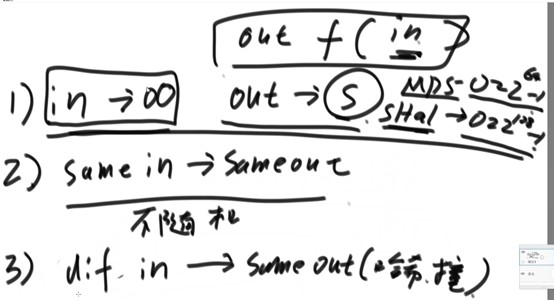 out f(in)
1) in → ∞ out → S MD5-0~2^64-1
SHa1 → 0~2^128-1
2) same in → Sameout
不随机
3) dif. in → Same out(哈希.撞)